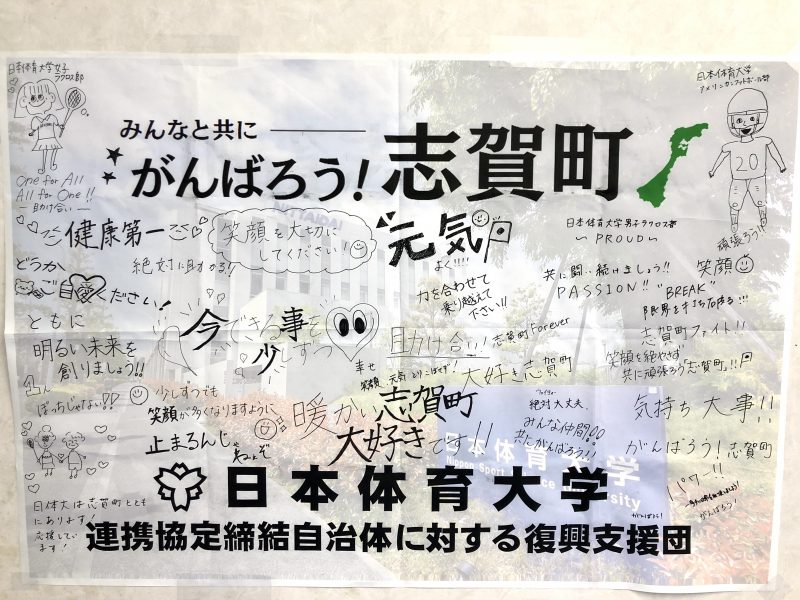 日本体育大学女子
ラクロス部
日本体育大学
アメリカンフットボール部
みんなと共に
がんばろう!志賀町
20
One for All
All for One!!
助け合い
頑張ろう!!
健康第一
笑顔を大切に
してください!
元気
よく!!!!
日本体育大学男子ラクロス部
～PROUD～
どうか
絶対に助かる!!
ご自愛ください!
力を合わせて
乗り越えて
下さい!!
共に闘い続けましょう!!
笑顔
PASSION!! "BREAK"
限界を打ち破る!!!
ともに
明るい未来を
創りましょう!!
今できる事を
少しずつ
助け合い!
志賀町Forever
志賀町ファイト!!
笑顔を絶やさず
共に頑張ろう「志賀町」!!
幸せ
笑顔、元気
大好き志賀町
1人
ぼっちじゃない!!
少しずつでも
笑顔が多くなりますように
暖かい志賀町
大好きです!!
止まるんじゃねぇぞ
ファイター
絶対大丈夫
みんな仲間!!
共にがんばろう!!
気持ち大事!!
がんばろう!志賀町
パワー!!
がんばろう!
日体大は志賀町ととも
にあります!
応援してい
ます!
日本体育大学
Nippon Sport
日本体育大学
連携協定締結自治体に対する復興支援団